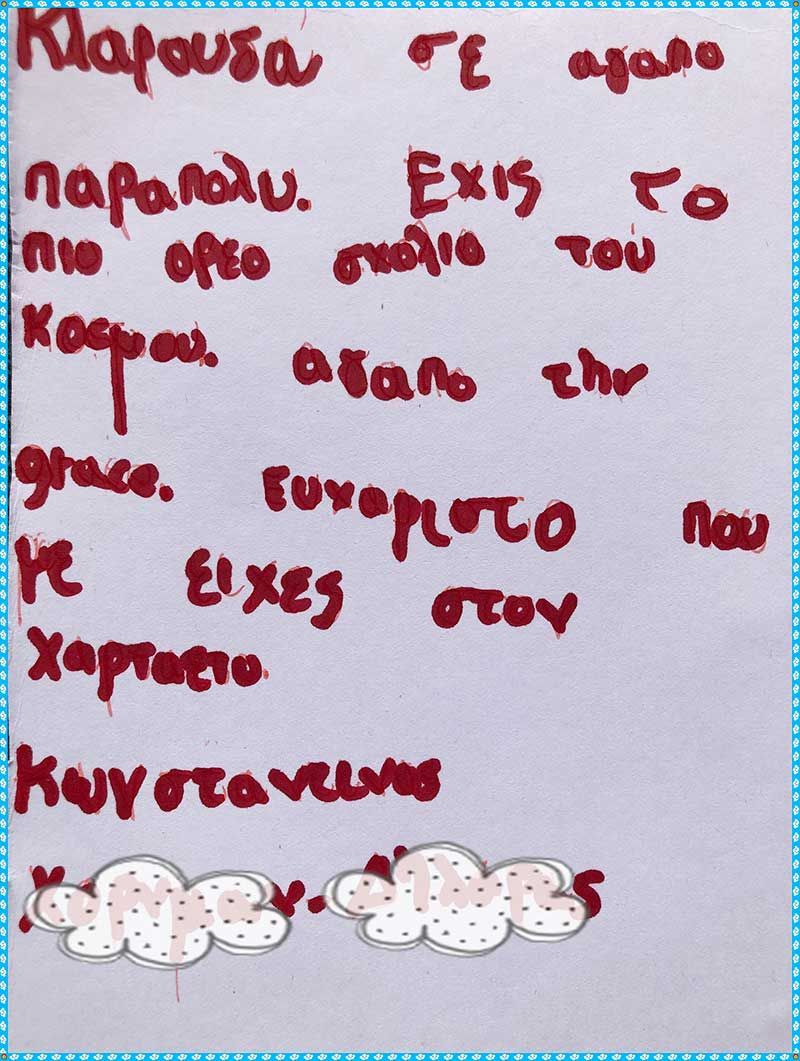 Κλαρουδα σε αγαπο
παραπολυ. Εχις το
πιο ορεο σχολιο του
Κοσμου. αγαπο την
grace. Ευχαριστο που
με ειχες στον
χαρταετο.
Κωνσταντινος